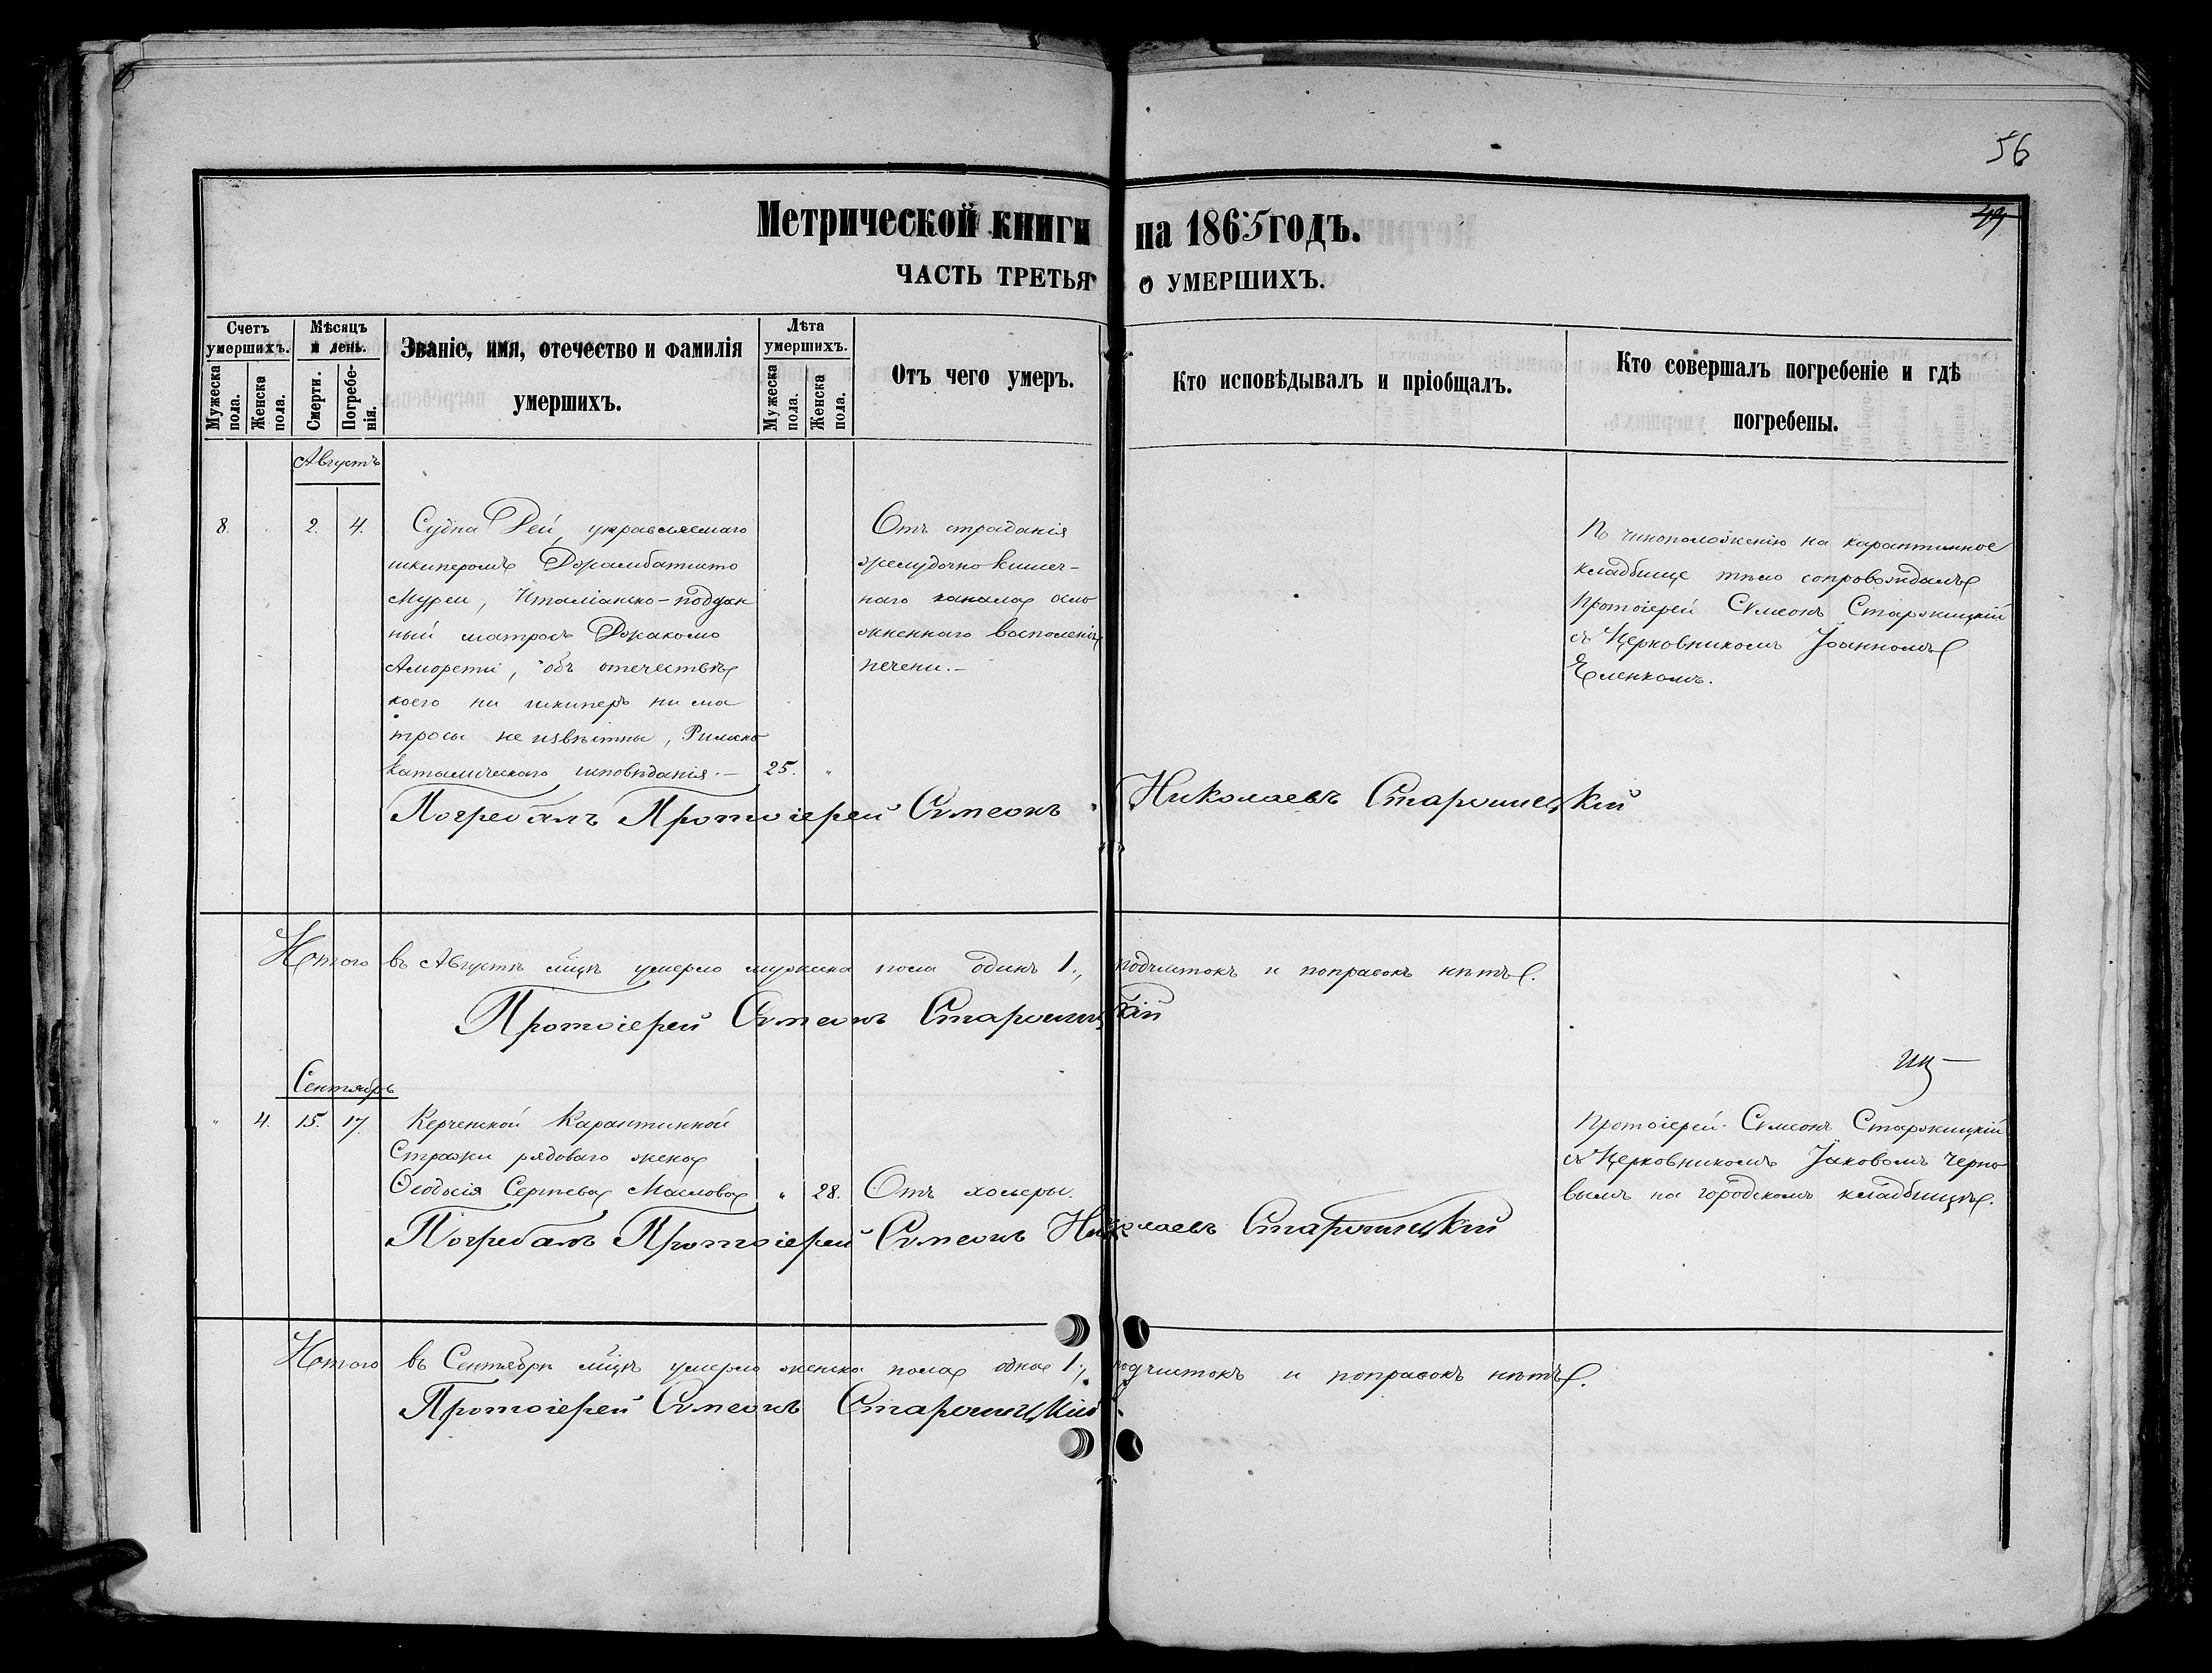 56
49
Метрической книги на 1865 годъ.
ЧАСТЬ ТРЕТЬЯ О УМЕРШИХЪ.
Счетъ умершихъ.
Мужеска пола.
Женска пола.
Мѣсяцъ и день.
Смерти.
Погребенія.
Званіе, имя, отечество и фамилія умершихъ.
Лѣта умершихъ.
Мужеска пола.
Женска пола.
Отъ чего умеръ.
Кто исповѣдывалъ и пріобщалъ.
Кто совершалъ погребеніе и гдѣ погребены.
Августъ
8. " 2. 4.
Судна Рей, управляемаго
шкиперомъ Джамбатисто
Мурси, Италіанско-поддан
ный матросъ Джакомо
Аморети, объ отечествѣ
коего ни шкиперъ ни ма
тросы не извѣстны, Римско
католическаго исповѣданія.—
25. "
Отъ страданія
желудочно кишеч-
наго канала осло
жненнаго воспаленія
печени.—
По чиноположенію на карантинное
кладбище тѣло сопровождалъ
Протоіерей Сѵмеонъ Старжицкій
съ Церковникомъ Іоанномъ
Еленкомъ.
Погребалъ Протоіерей Сѵмеонъ Николаевъ Старжицкій
Итого въ Августѣ мѣцѣ умерло мужеска пола одинъ 1., подчистокъ и поправокъ нѣтъ.
Протоіерей Сѵмеонъ Старжицкій
Сентябрь
" 4. 15. 17.
Керченской Карантинной
Стражи рядоваго жена
Ѳеодосія Сергѣева Маслова
" 28.
Отъ холеры.
Протоіерей Сѵмеонъ Старжицкій
съ Церковникомъ Іаковомъ Черно
вымъ на городскомъ кладбищѣ.
Погребалъ Протоіерей Сѵмеонъ Николаевъ Старжицкій
Итого въ Сентябрѣ мѣцѣ умерло женска пола одна 1., подчистокъ и поправокъ нѣтъ.
Протоіерей Сѵмеонъ Старжицкій